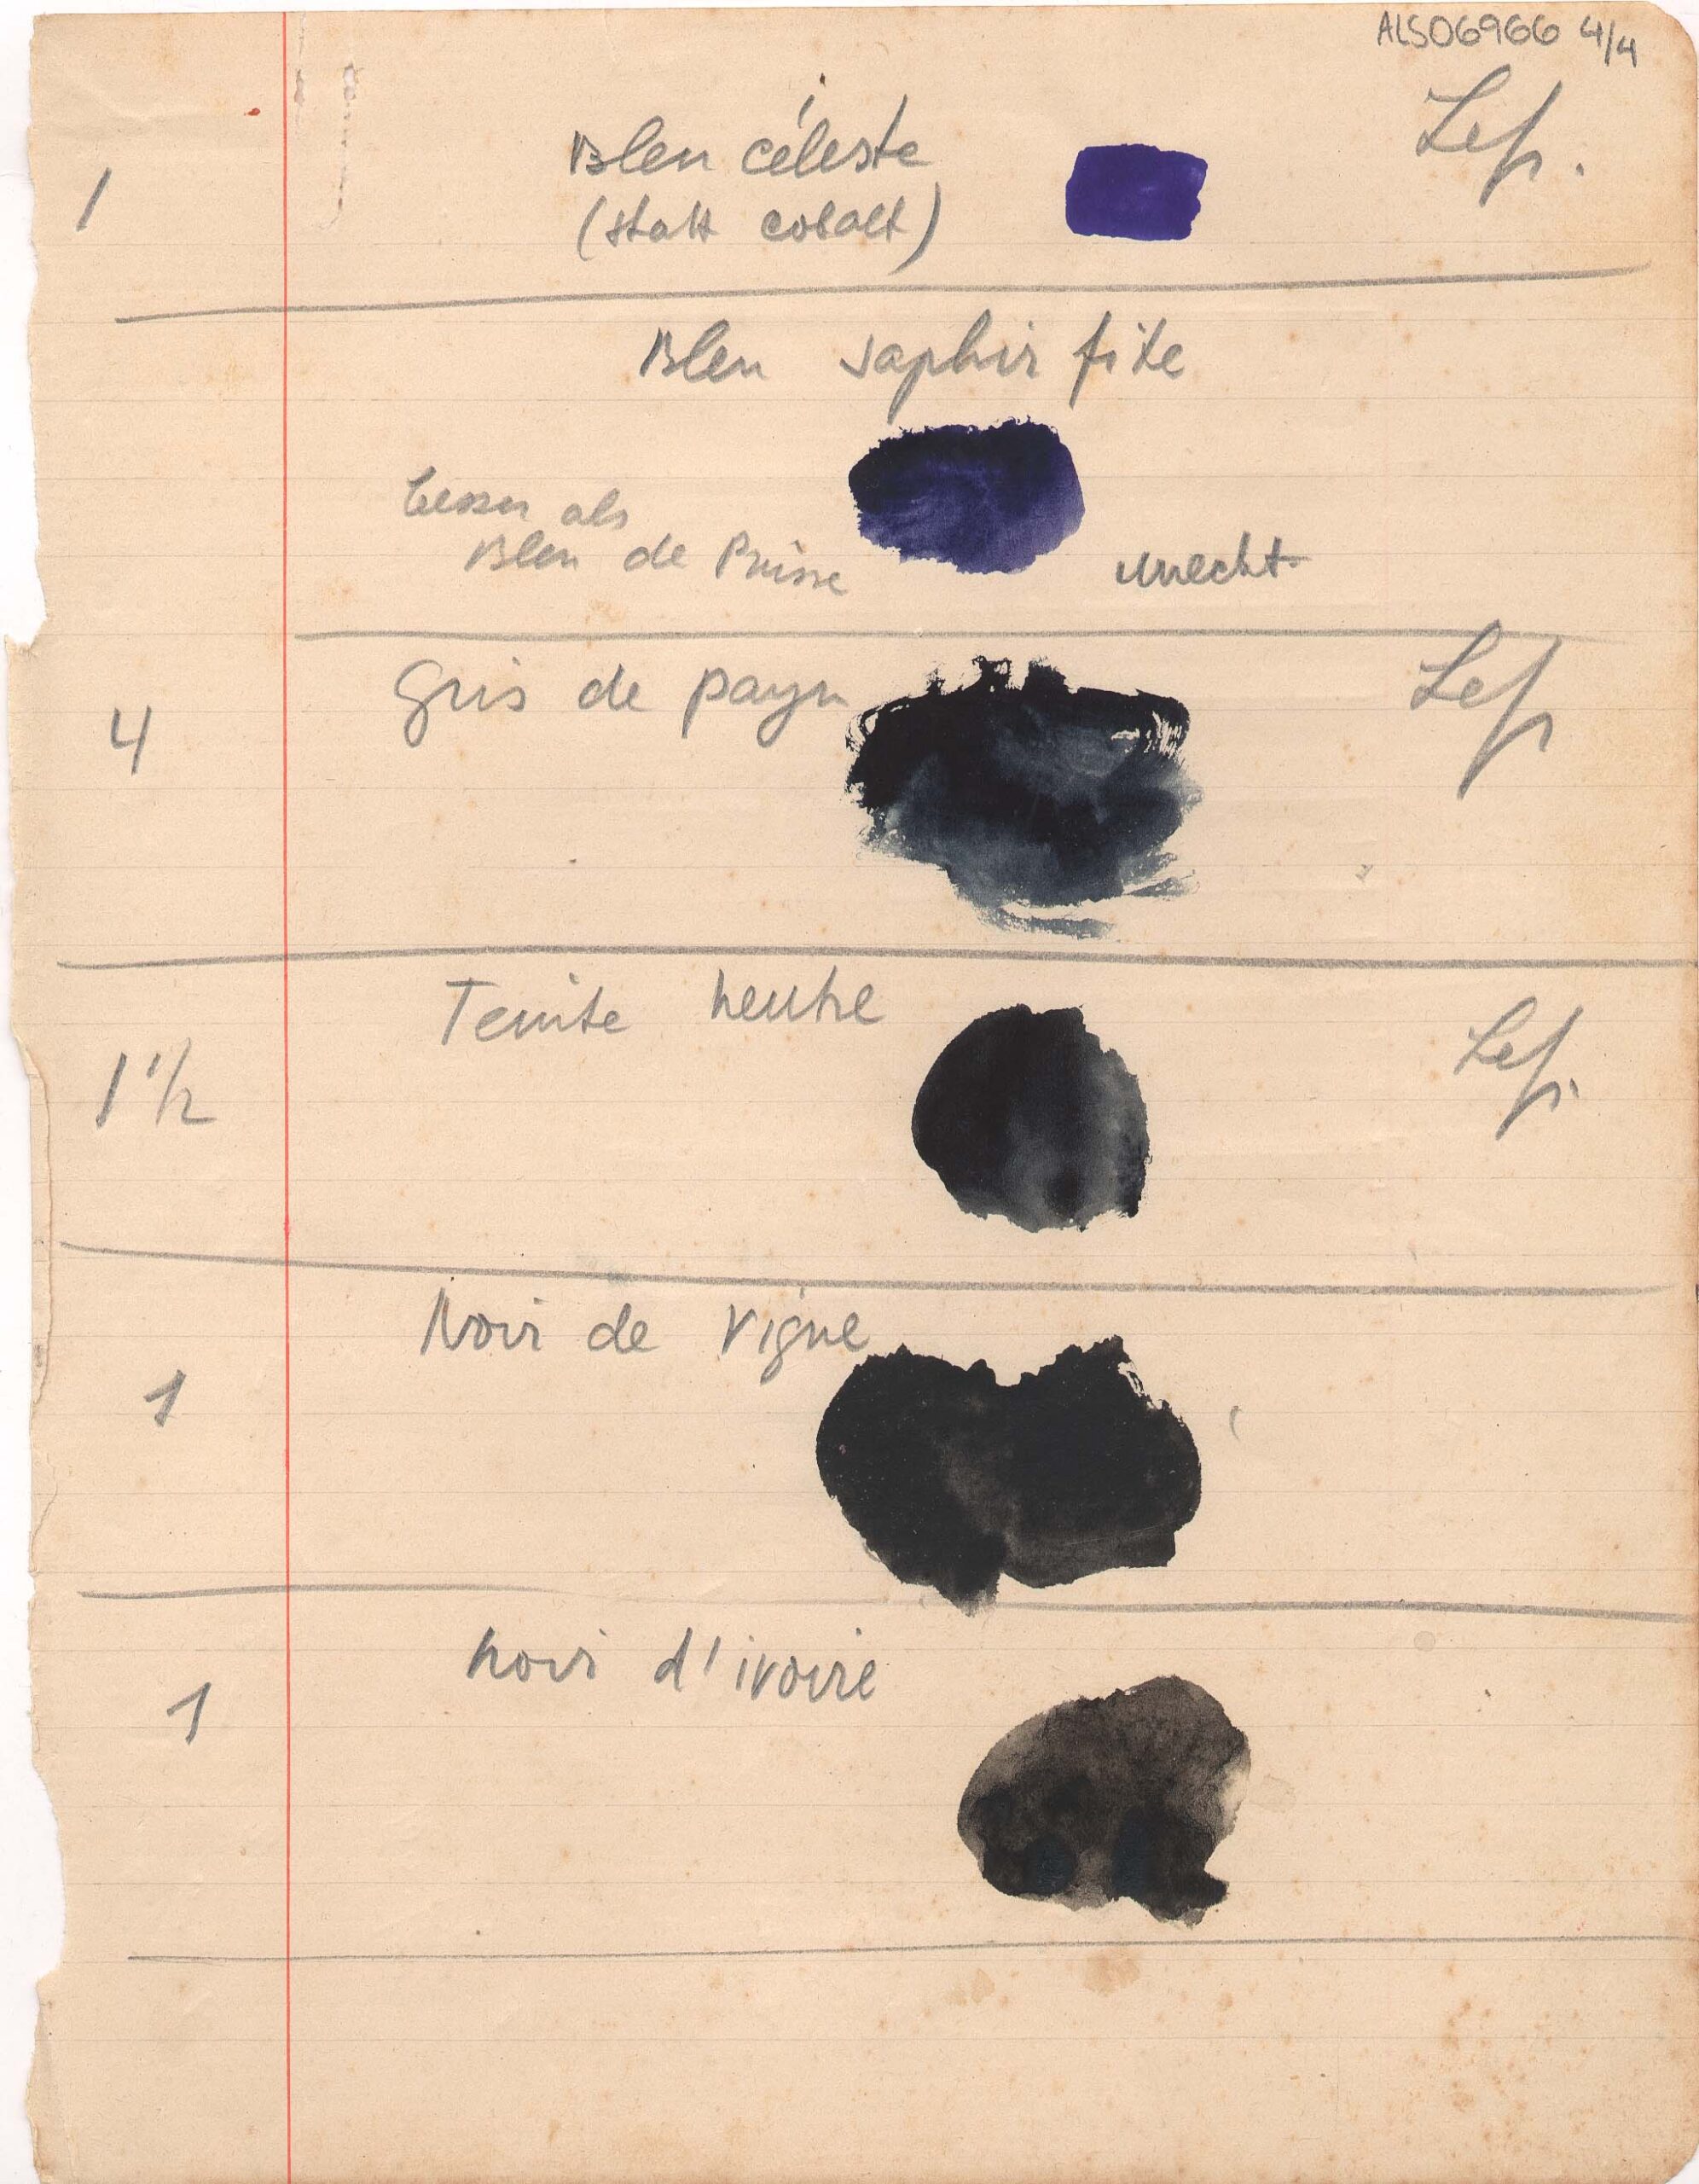 ALS06966 4/4
1 Bleu céleste Lefr.
(statt cobalt)
Bleu saphir fixe
besser als
Bleu de Prusse unecht
4 Gris de payn Lefr
1 1/2 Teinte neutre Lefr.
1 Noir de Vigne
1 noir d'ivoire